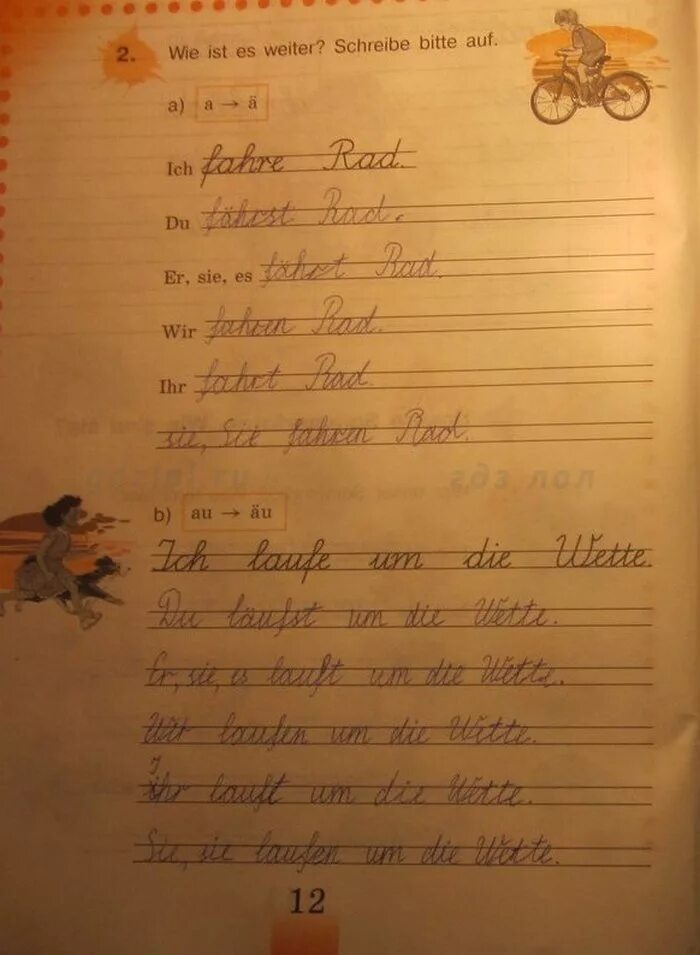 2. Wie ist es weiter? Schreibe bitte auf.
a) a → ä
Ich fahre Rad.
Du fährst Rad.
Er, sie, es fährt Rad.
Wir fahren Rad.
Ihr fahrt Rad.
sie, Sie fahren Rad.
b) au → äu
Ich laufe um die Wette.
Du läufst um die Wette.
Er, sie, es lauft um die Wette.
Wir laufen um die Wette.
Ihr lauft um die Wette.
Sie, sie laufen um die Wette.
12